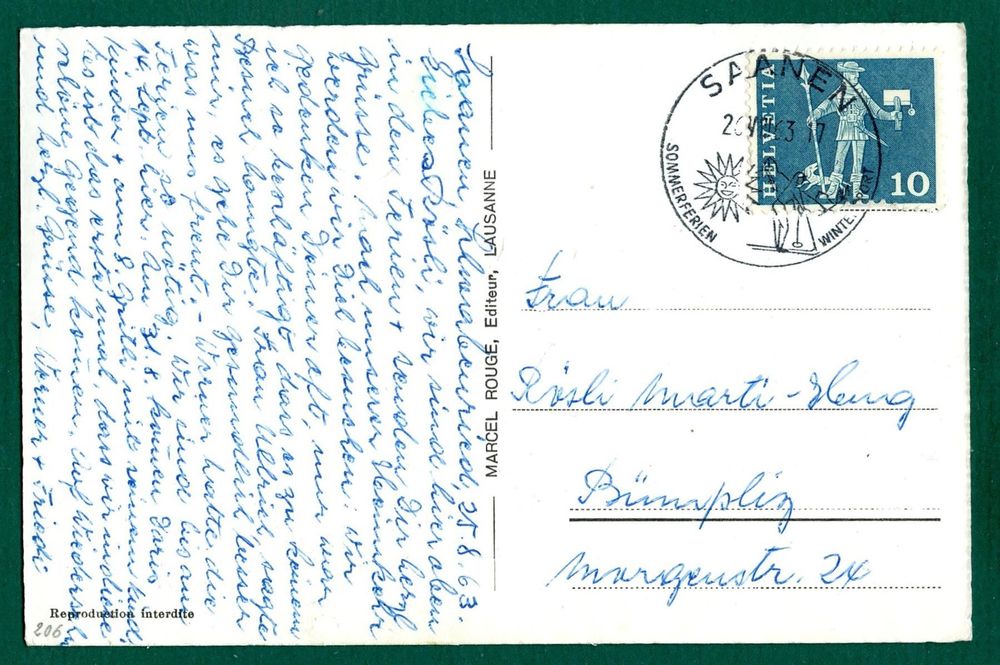 Saanen, Schwabenried, 25.8.63.
Liebes Rösli, wir sind hier oben
in den Ferien + senden Dir herzl.
Grüsse. Nach unserer Heimkehr
werden wir Dich besuchen. Wir
gedenken Deiner oft, nur war
ich so beschäftigt dass es zu keinem
Besuch langte. Frau Ullrich sagte
mir, es gehe Dir gesundheitl. besser
was uns freut. - Werner hatte die
Ferien so nötig. Wir sind bis am
14. Sept. hier. Am 31.8. kommen Doris
Kinder + am 8. Gritli mit seinem
Es ist das erste mal, dass wir in diese
schöne Gegend kommen. Auf Wiedersehn
und herzl. Grüsse, Werner + Friedi
MARCEL ROUGE, Editeur, LAUSANNE
Reproduction interdite
206
SAANEN
63 17
SOMMERFERIEN
HELVETIA
10
Frau
Rösli Marti-Heng
Bümpliz
Morgenstr. 24